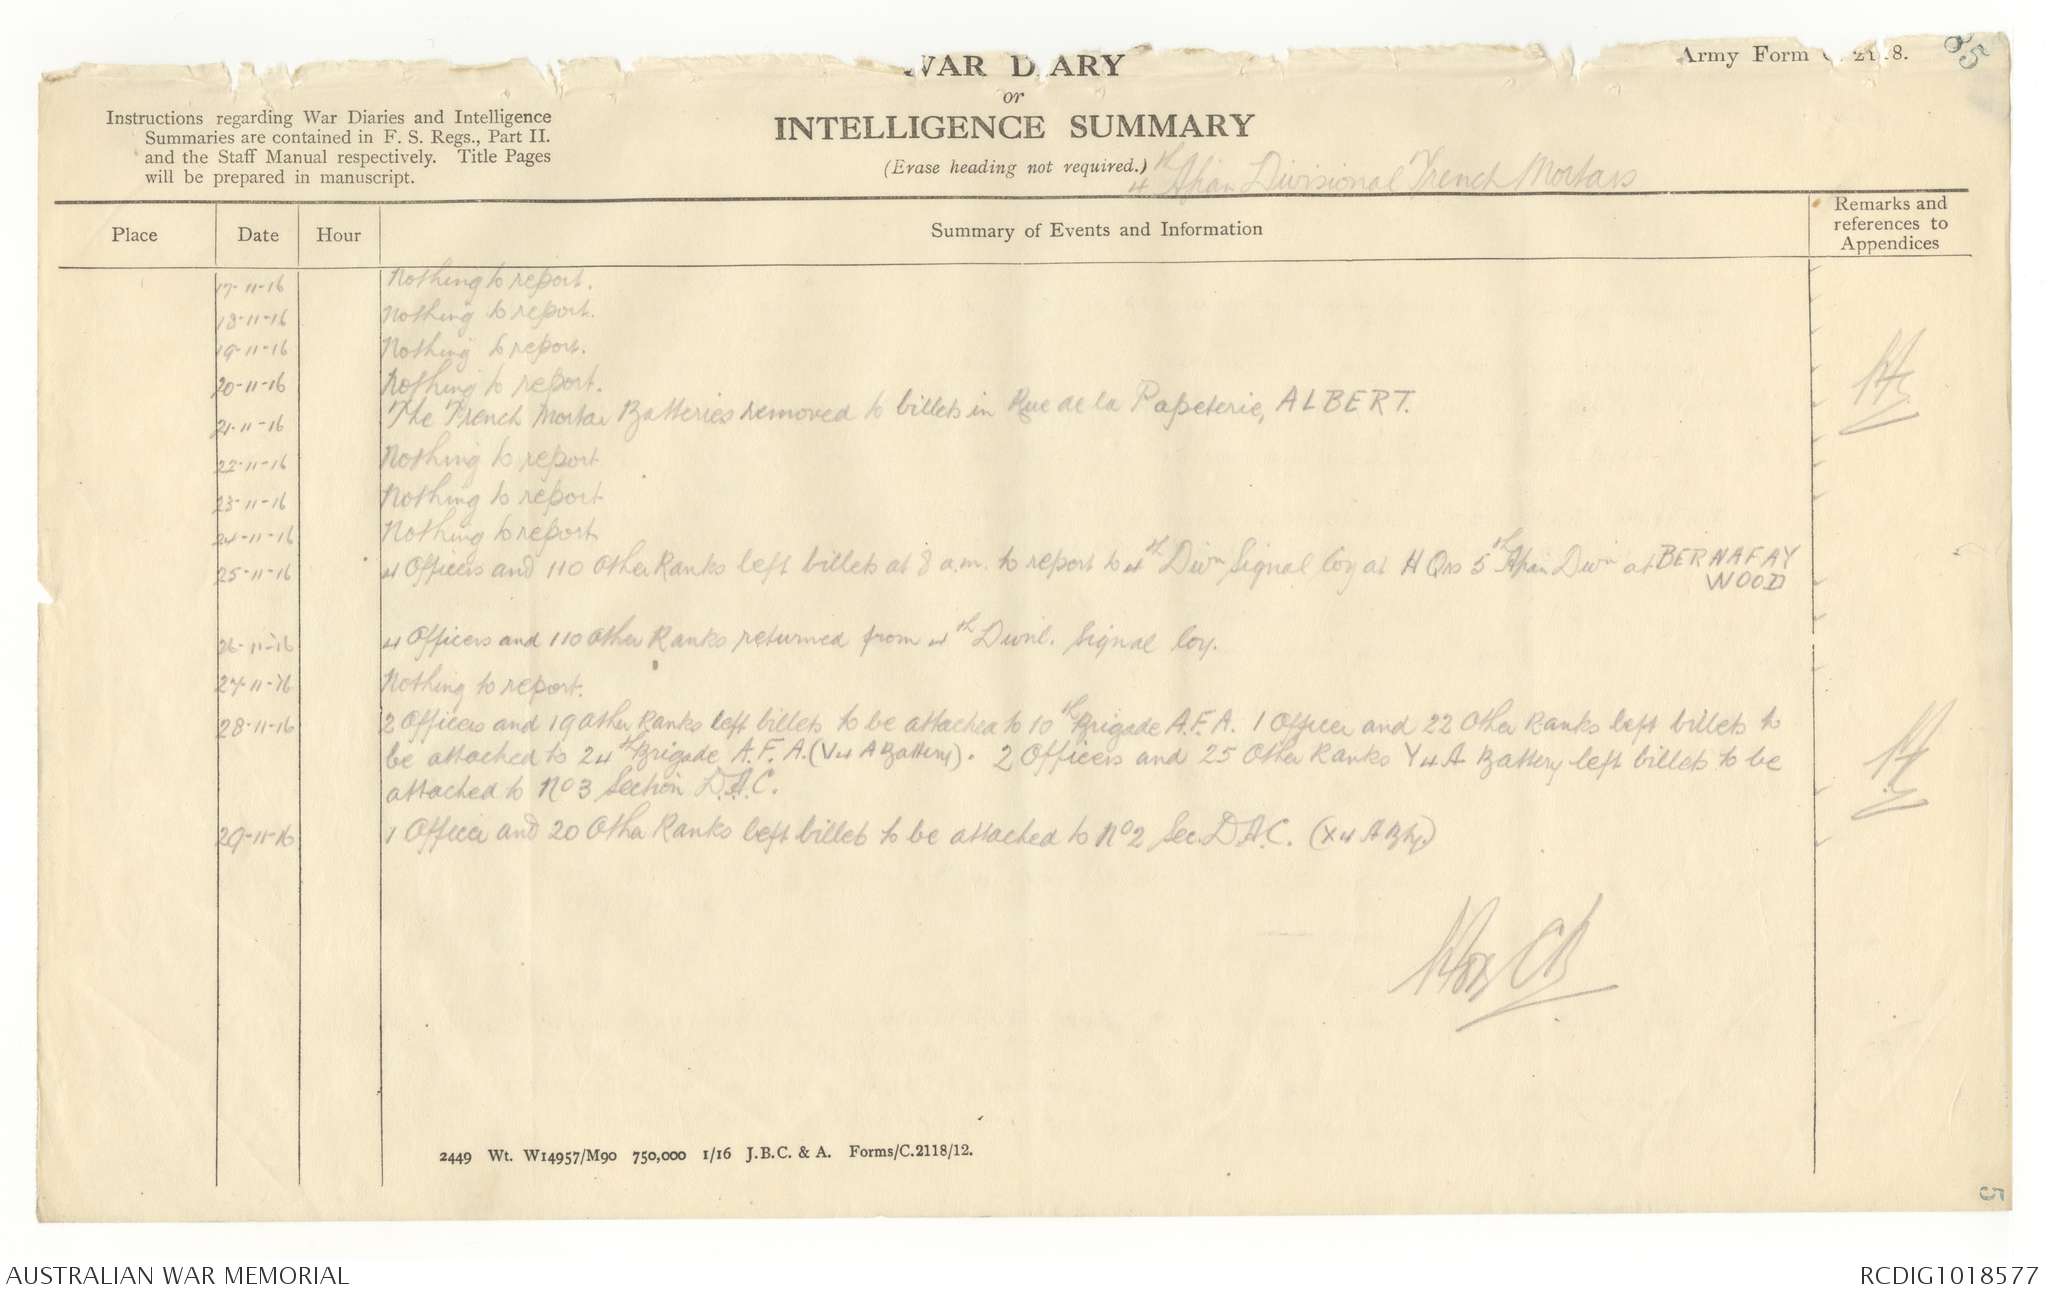 WAR DIARY
or
INTELLIGENCE SUMMARY
(Erase heading not required.)
Army Form C. 2118.
85
Instructions regarding War Diaries and Intelligence
Summaries are contained in F. S. Regs., Part II.
and the Staff Manual respectively. Title Pages
will be prepared in manuscript.
4th Divisional Trench Mortars
Place Date Hour Summary of Events and Information Remarks and references to Appendices
17-11-16 Nothing to report.
18-11-16 Nothing to report.
19-11-16 Nothing to report.
20-11-16 Nothing to report.
21-11-16 The Trench Mortar Batteries removed to billets in Rue de la Papeterie, ALBERT.
22-11-16 Nothing to report
23-11-16 Nothing to report
24-11-16 Nothing to report
25-11-16 4 Officers and 110 Other Ranks left billets at 8 a.m. to report to 4th Divn Signal Coy at H Qrs 5th Divn at BERNAFAY
WOOD
26-11-16 4 Officers and 110 Other Ranks returned from 4th Divnl. Signal Coy.
27-11-16 Nothing to report.
28-11-16 2 Officers and 19 Other Ranks left billets to be attached to 10th Brigade A.F.A. 1 Officer and 22 Other Ranks left billets to
be attached to 24th Brigade A.F.A. (V4A Battery). 2 Officers and 25 Other Ranks Y4A Battery left billets to be
attached to No 3 Section D.A.C.
29-11-16 1 Officer and 20 Other Ranks left billets to be attached to No 2 Sec. D.A.C. (X4A Bty.)
2449 Wt. W14957/M90 750,000 1/16 J.B.C. & A. Forms/C.2118/12.
AUSTRALIAN WAR MEMORIAL
RCDIG1018577